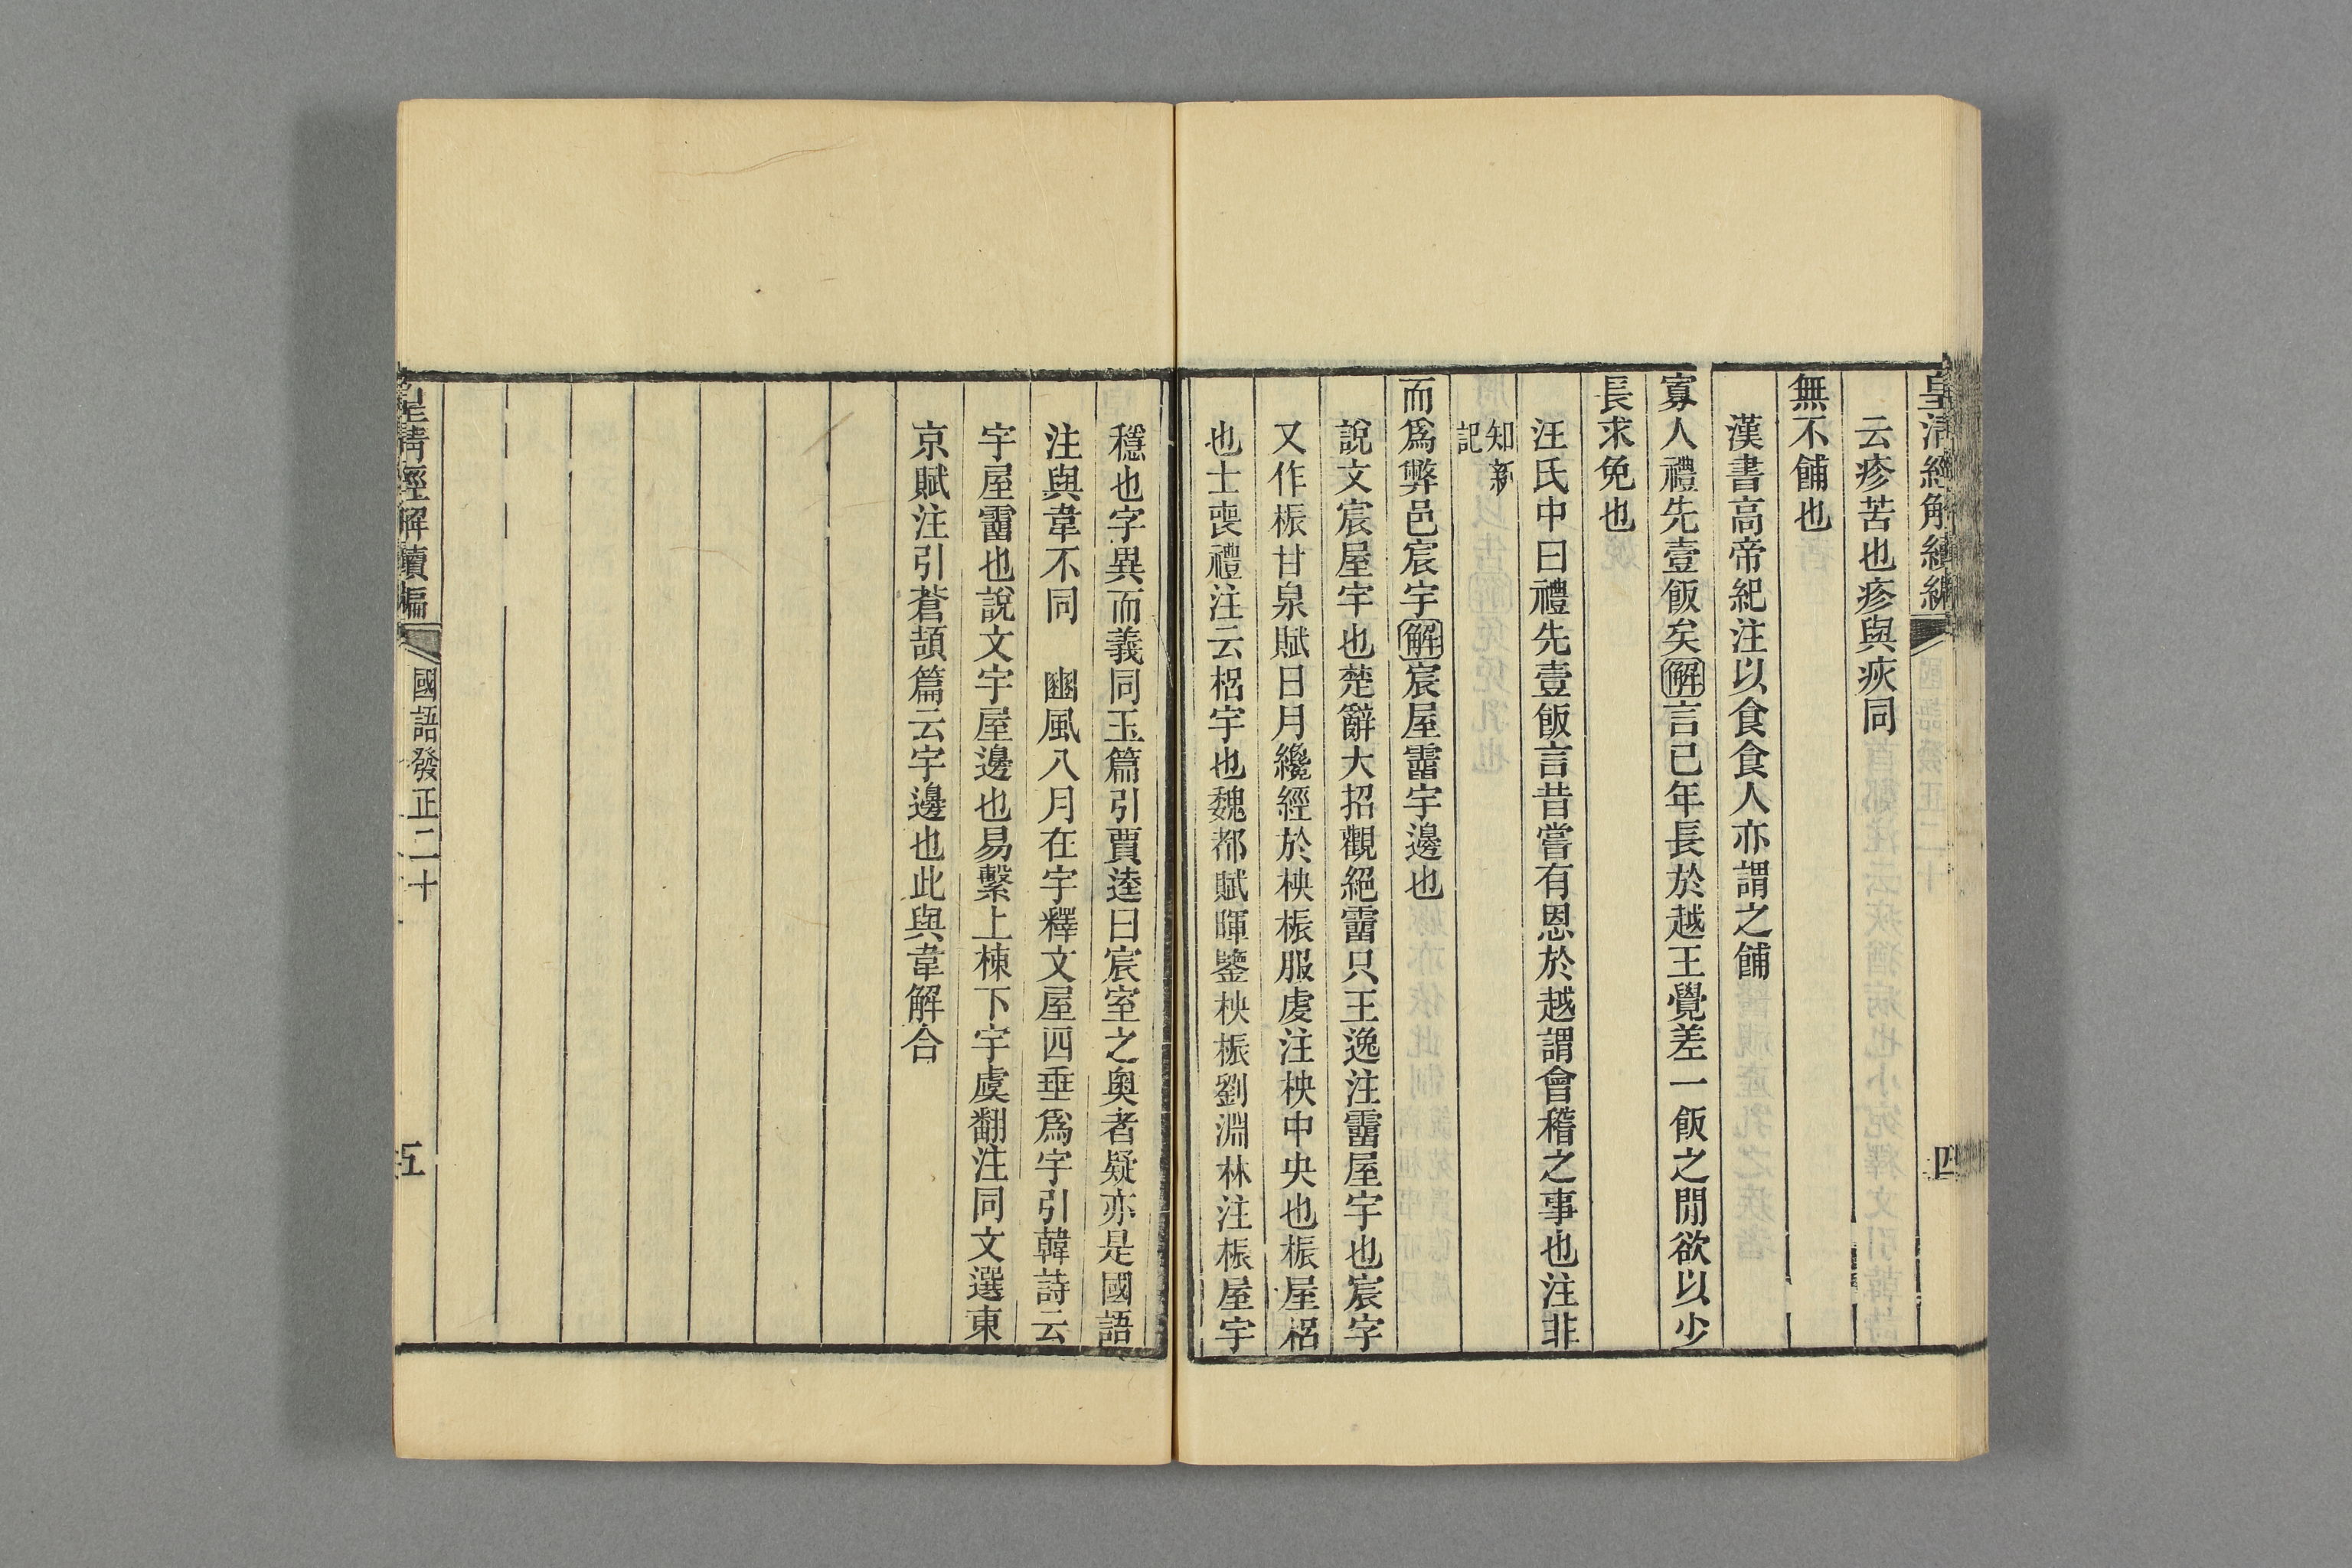 皇清經解續編
四
云疹苦也疹與疢同
無不餔也
漢書高帝紀注以食食人亦謂之餔
寡人禮先壹飯矣解言已年長於越王覺差一飯之閒欲以少
長求免也
汪氏中曰禮先壹飯言昔嘗有恩於越謂會稽之事也注非
知新
記
而爲弊邑宸宇解宸屋霤宇邊也
說文宸屋宇也楚辭大招觀絕霤只王逸注霤屋宇也宸字
又作桭甘泉賦日月纔經於柍桭服虔注柍中央也桭屋梠
也士喪禮注云梠宇也魏都賦暉鑒柍桭劉淵林注桭屋宇
穩也字異而義同玉篇引賈逵曰宸室之奧者疑亦是國語
注與韋不同　豳風八月在宇釋文屋四垂爲宇引韓詩云
宇屋霤也說文宇屋邊也易繫上棟下宇虞翻注同文選東
京賦注引蒼頡篇云宇邊也此與韋解合
皇清經解續編
國語發正二十
五